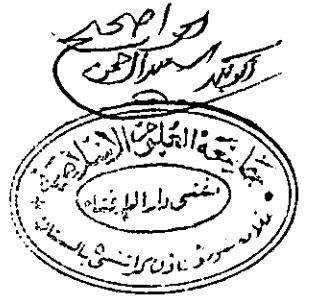 الجواب صحیح
جامعة العلوم الاسلامیة
مفتی دار الافتاء
علامہ بنوری ٹاؤن کراتشی ۵ باکستان